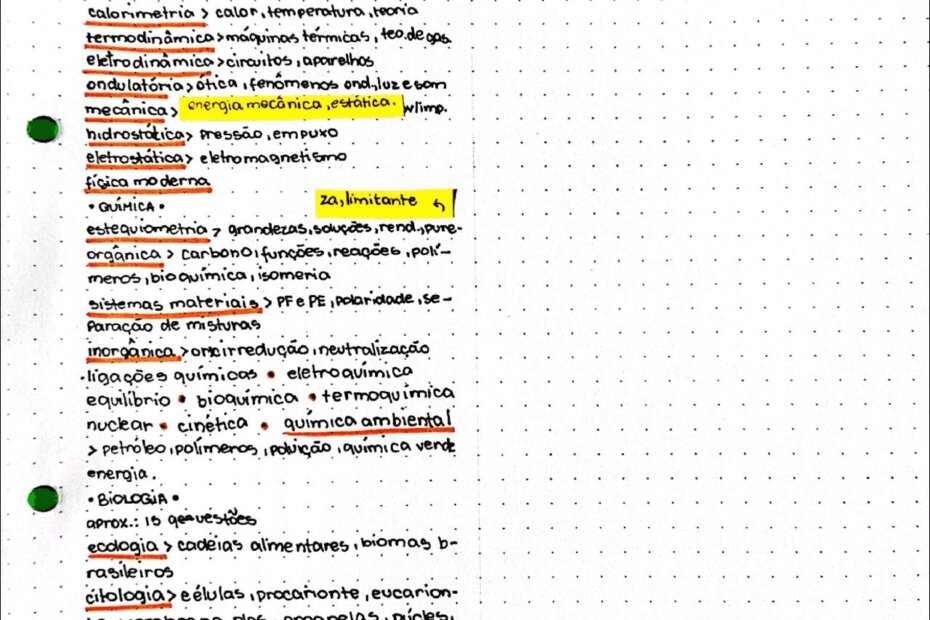 calorimetria > calor, temperatura, teoria
termodinâmica > máquinas térmicas, teo. de gas.
eletrodinâmica > circuitos, aparelhos
ondulatória > ótica, fenômenos ond., luz e som
mecânica > energia mecânica, estática. w/imp.
hidrostática > pressão, empuxo
eletrostática > eletromagnetismo
física moderna
• QUÍMICA •
za, limitante
estequiometria > grandezas, soluções, rend., pure-
orgânica > carbono, funções, reações, polí-
meros, bioquímica, isomeria
sistemas materiais > PF e PE, polaridade, se-
paração de misturas
inorgânica > oxirredução, neutralização
· ligações químicas • eletroquímica
equilíbrio • bioquímica • termoquímica
nuclear • cinética • química ambiental
> petróleo, polímeros, poluição, química verde
energia.
• BIOLOGIA •
aprox.: 15 questões
ecologia > cadeias alimentares, biomas b-
rasileiros
citologia > células, procarionte, eucarion-